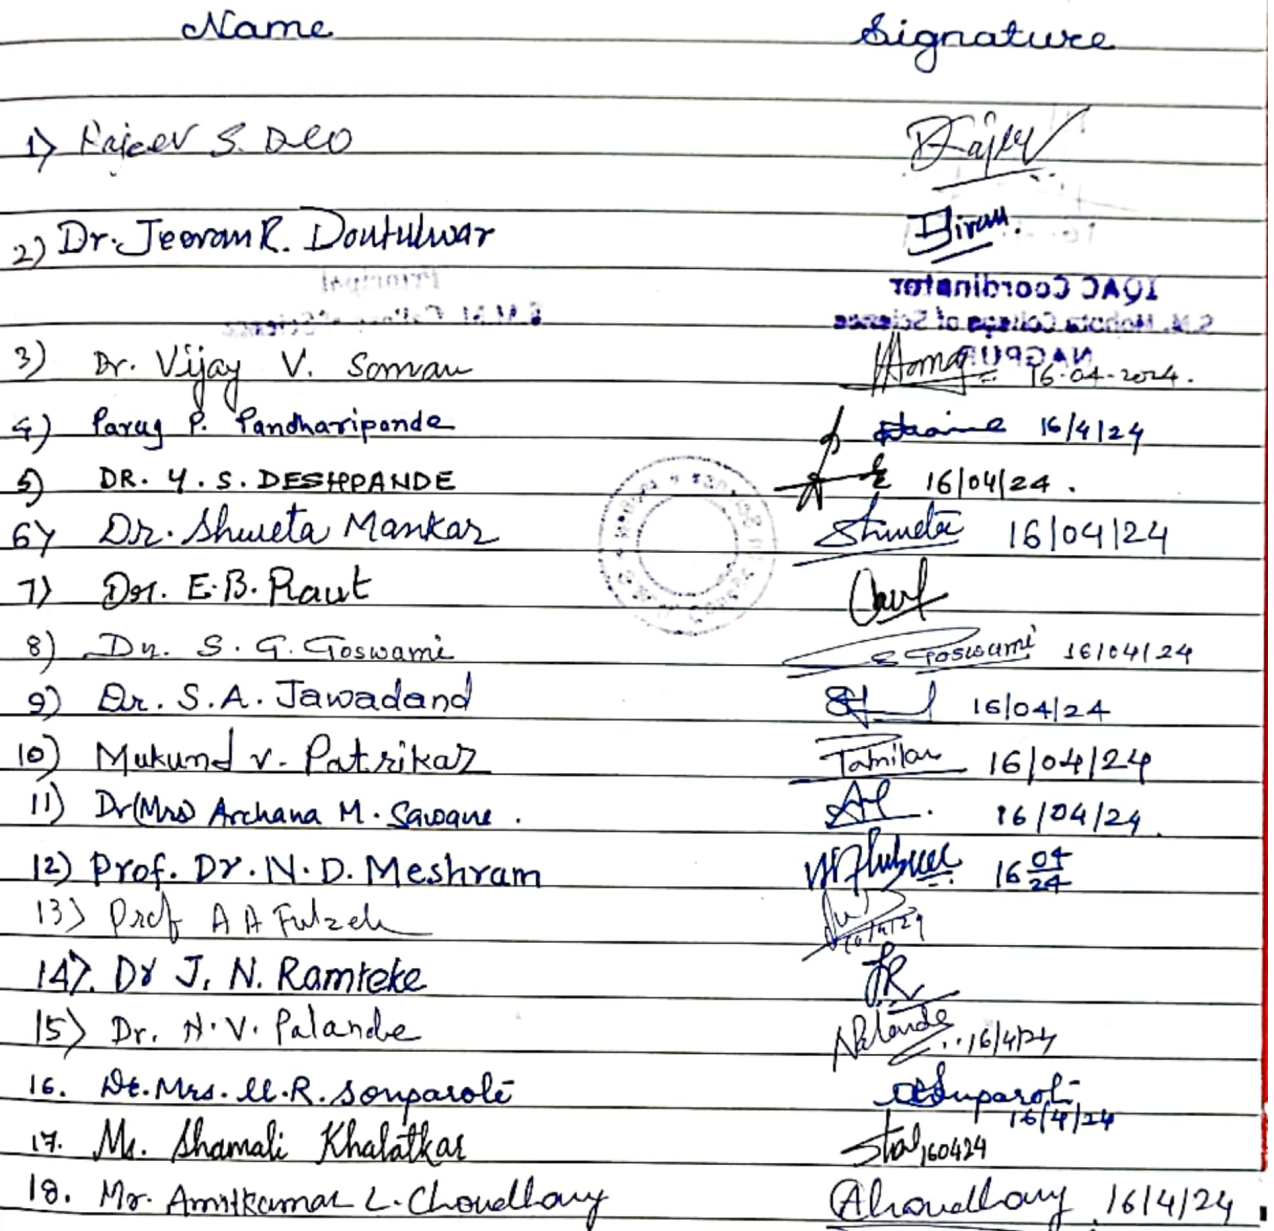 Name Signature
1) Rajeev S. Deo Rajeev
2) Dr. Jeevan R. Dontulwar Jivan.
Principal IQAC Coordinator
S.M.M. College of Science S.M. Mohota College of Science
NAGPUR
3) Dr. Vijay V. Soman 16-04-2024.
4) Parag P. Pandharipande 16/4/24
5) DR. Y. S. DESHPANDE 16/04/24.
6) Dr. Shweta Mankar Shweta 16/04/24
7) Dr. E.B. Raut Raut
8) Dr. S. G. Goswami Goswami 16/04/24
9) Dr. S.A. Jawadand 16/04/24
10) Mukund V. Patrikar Patrikar 16/04/24
11) Dr(Mrs) Archana M. Sawane. 16/04/24.
12) Prof. Dr. N. D. Meshram 16 04/24
13) Prof A A Fulzele 16/4/24
14). Dr J. N. Ramteke JR
15) Dr. N. V. Palande Palande 16/4/24
16. Dr. Mrs. U. R. Sonparote 16/4/24
17. Ms. Shamali Khalatkar 160424
18. Mr. Amitkumar L. Choudhary AChoudhary 16/4/24